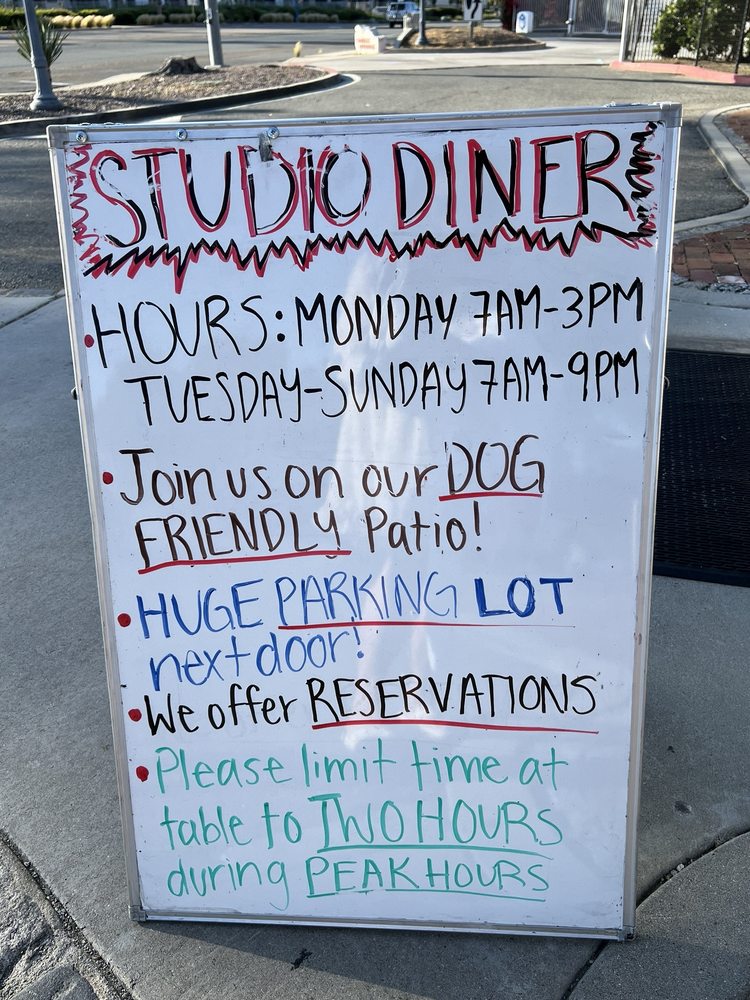 STUDIO DINER
• HOURS: MONDAY 7AM-3PM
TUESDAY-SUNDAY 7AM-9PM
• Join us on our DOG
FRIENDLY Patio!
• HUGE PARKING LOT
next door!
• We offer RESERVATIONS
• Please limit time at
table to TWO HOURS
during PEAK HOURS